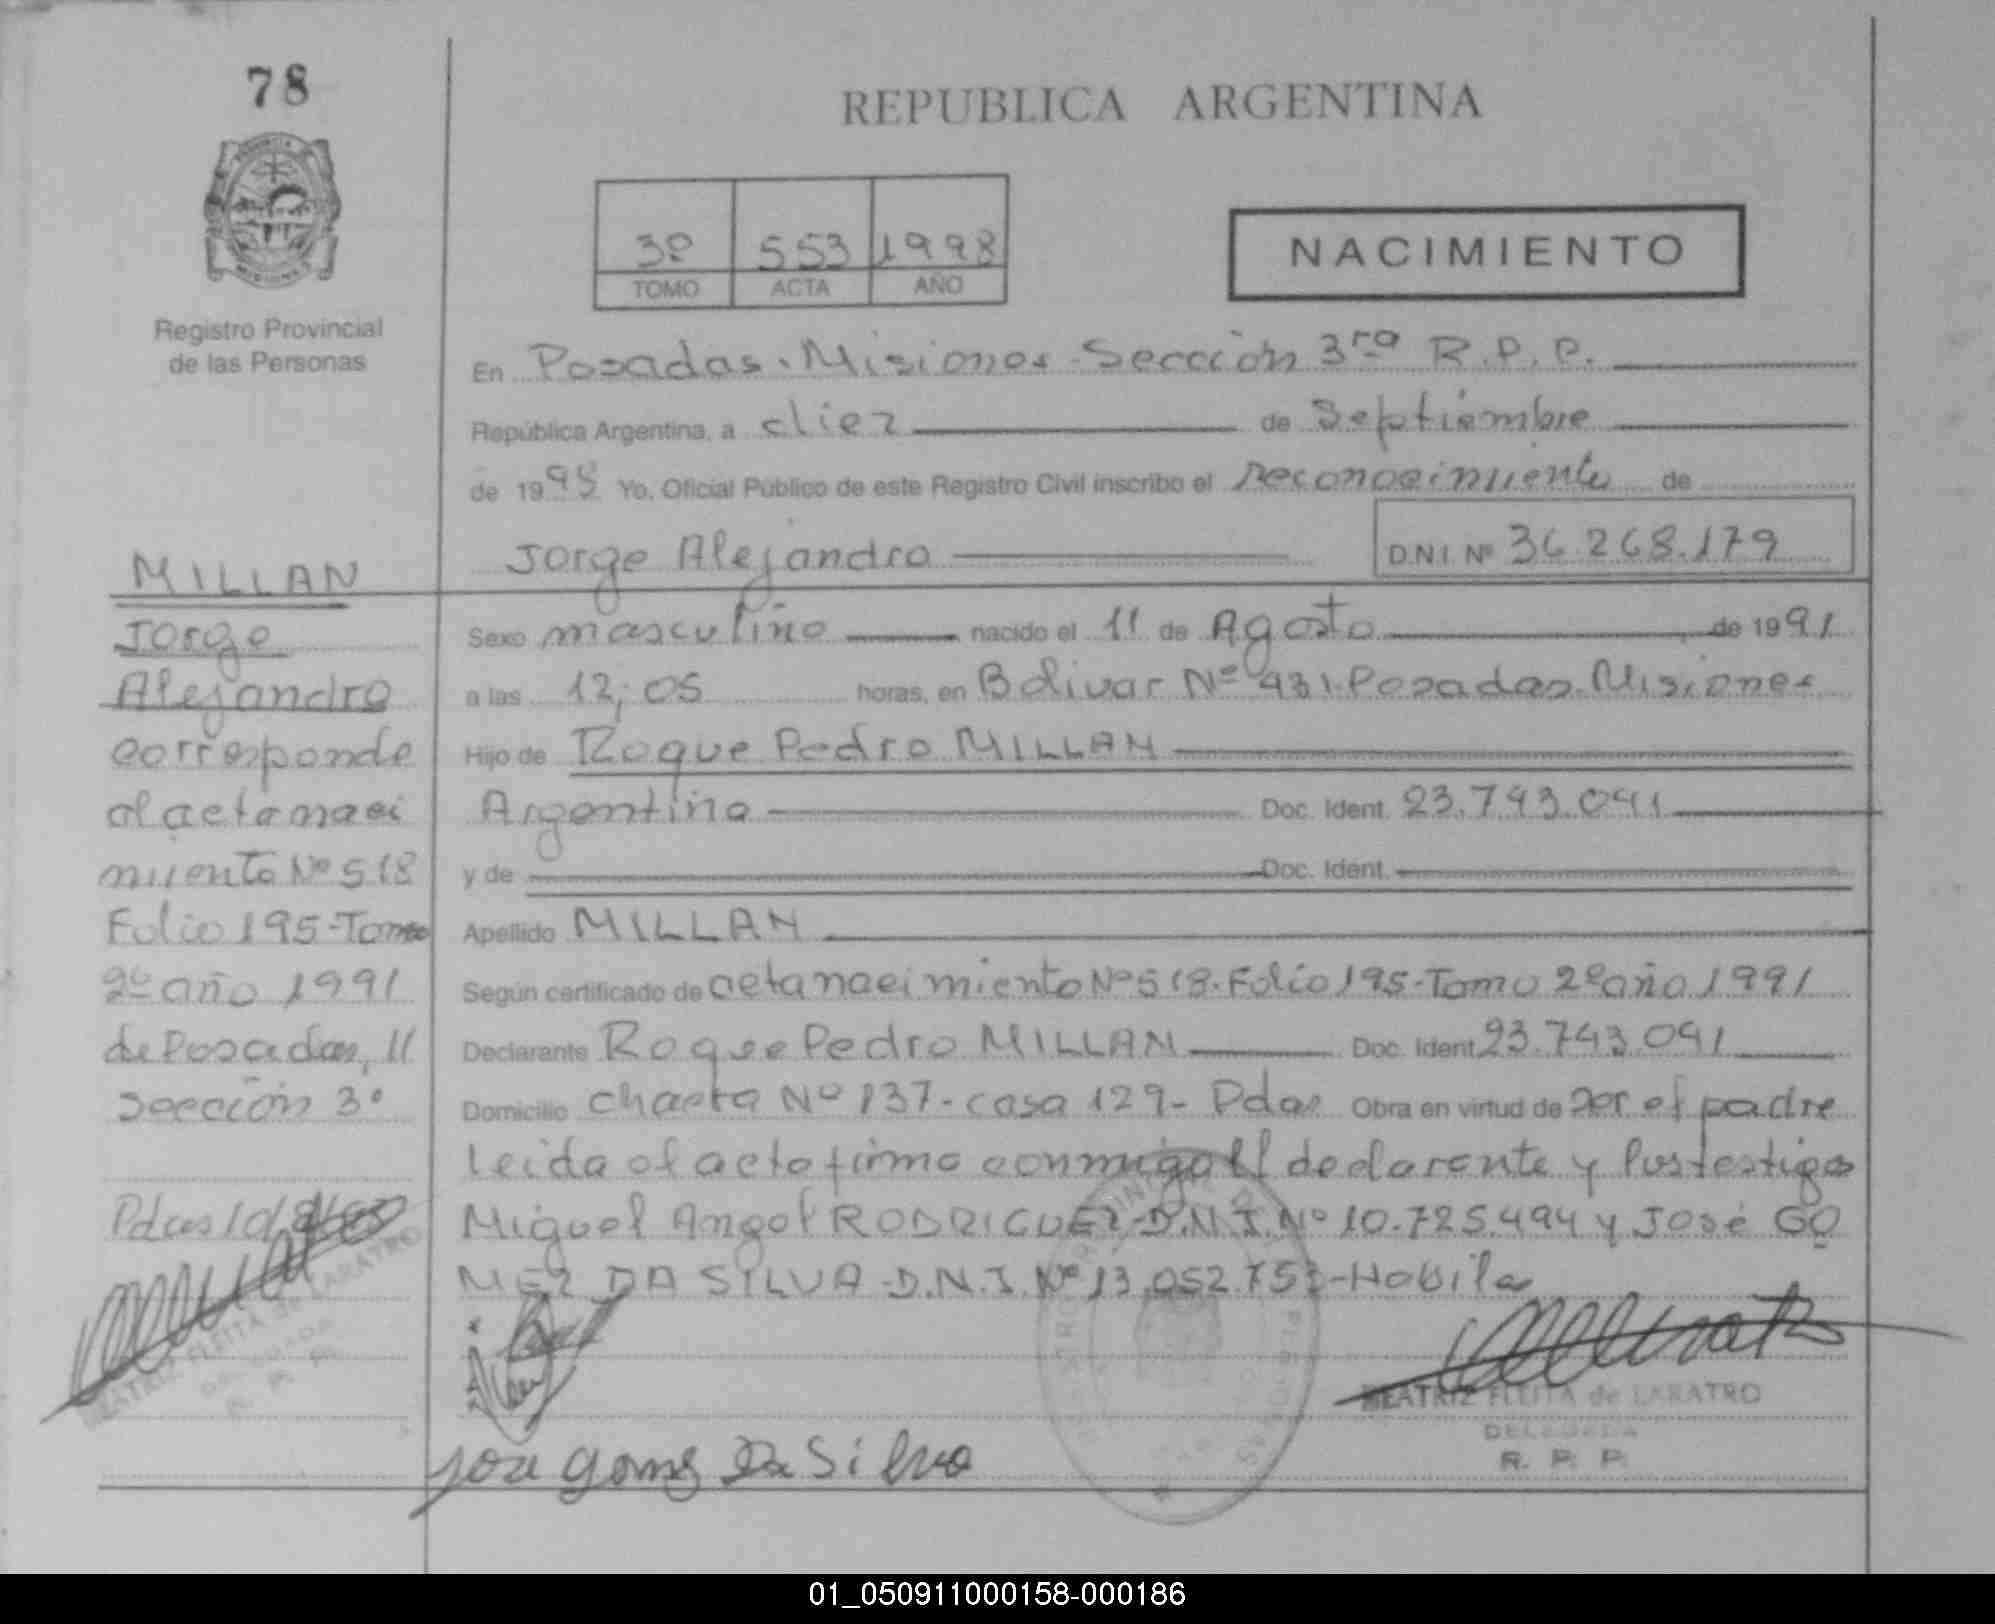 78
REPUBLICA ARGENTINA
3º 553 1998
TOMO ACTA AÑO
NACIMIENTO
Registro Provincial
de las Personas
En Posadas. Misiones - Sección 3ra R.P.P.
República Argentina, a diez de Septiembre
de 1998 Yo, Oficial Público de este Registro Civil inscribo el reconocimiento de
Jorge Alejandro D.N.I. Nº 36.268.179
MILLAN
Jorge
Alejandro
corresponde
al acta naci
miento Nº 518
Folio 195-Tomo
2º año 1991
de Posadas,
sección 3º
Pdas
BEATRIZ FLEITA de LARATRO
DELEGADA
R. P. P.
Sexo masculino nacido el 11 de Agosto de 1991
a las 12,05 horas, en Bolivar Nº 431. Posadas. Misiones
Hijo de Roque Pedro MILLAN
Argentino Doc. Ident. 23.743.041
y de Doc. Ident.
Apellido MILLAN
Según certificado de acta nacimiento Nº 518. Folio 195-Tomo 2º año 1991
Declarante Roque Pedro MILLAN Doc. Ident 23.743.041
Domicilio chacra Nº 137- casa 129- Pdas Obra en virtud de ser el padre
Leida el acta firma conmigo el declarante y los testigos
Miguel Angel RODRIGUEZ-D.N.I. Nº 10.725.494 y José GO
MEZ DA SILVA-D.N.I. Nº 13.052.753-Habila
BEATRIZ FLEITA de LARATRO
DELEGADA
R. P. P.
José Gomez Da Silva
01_050911000158-000186